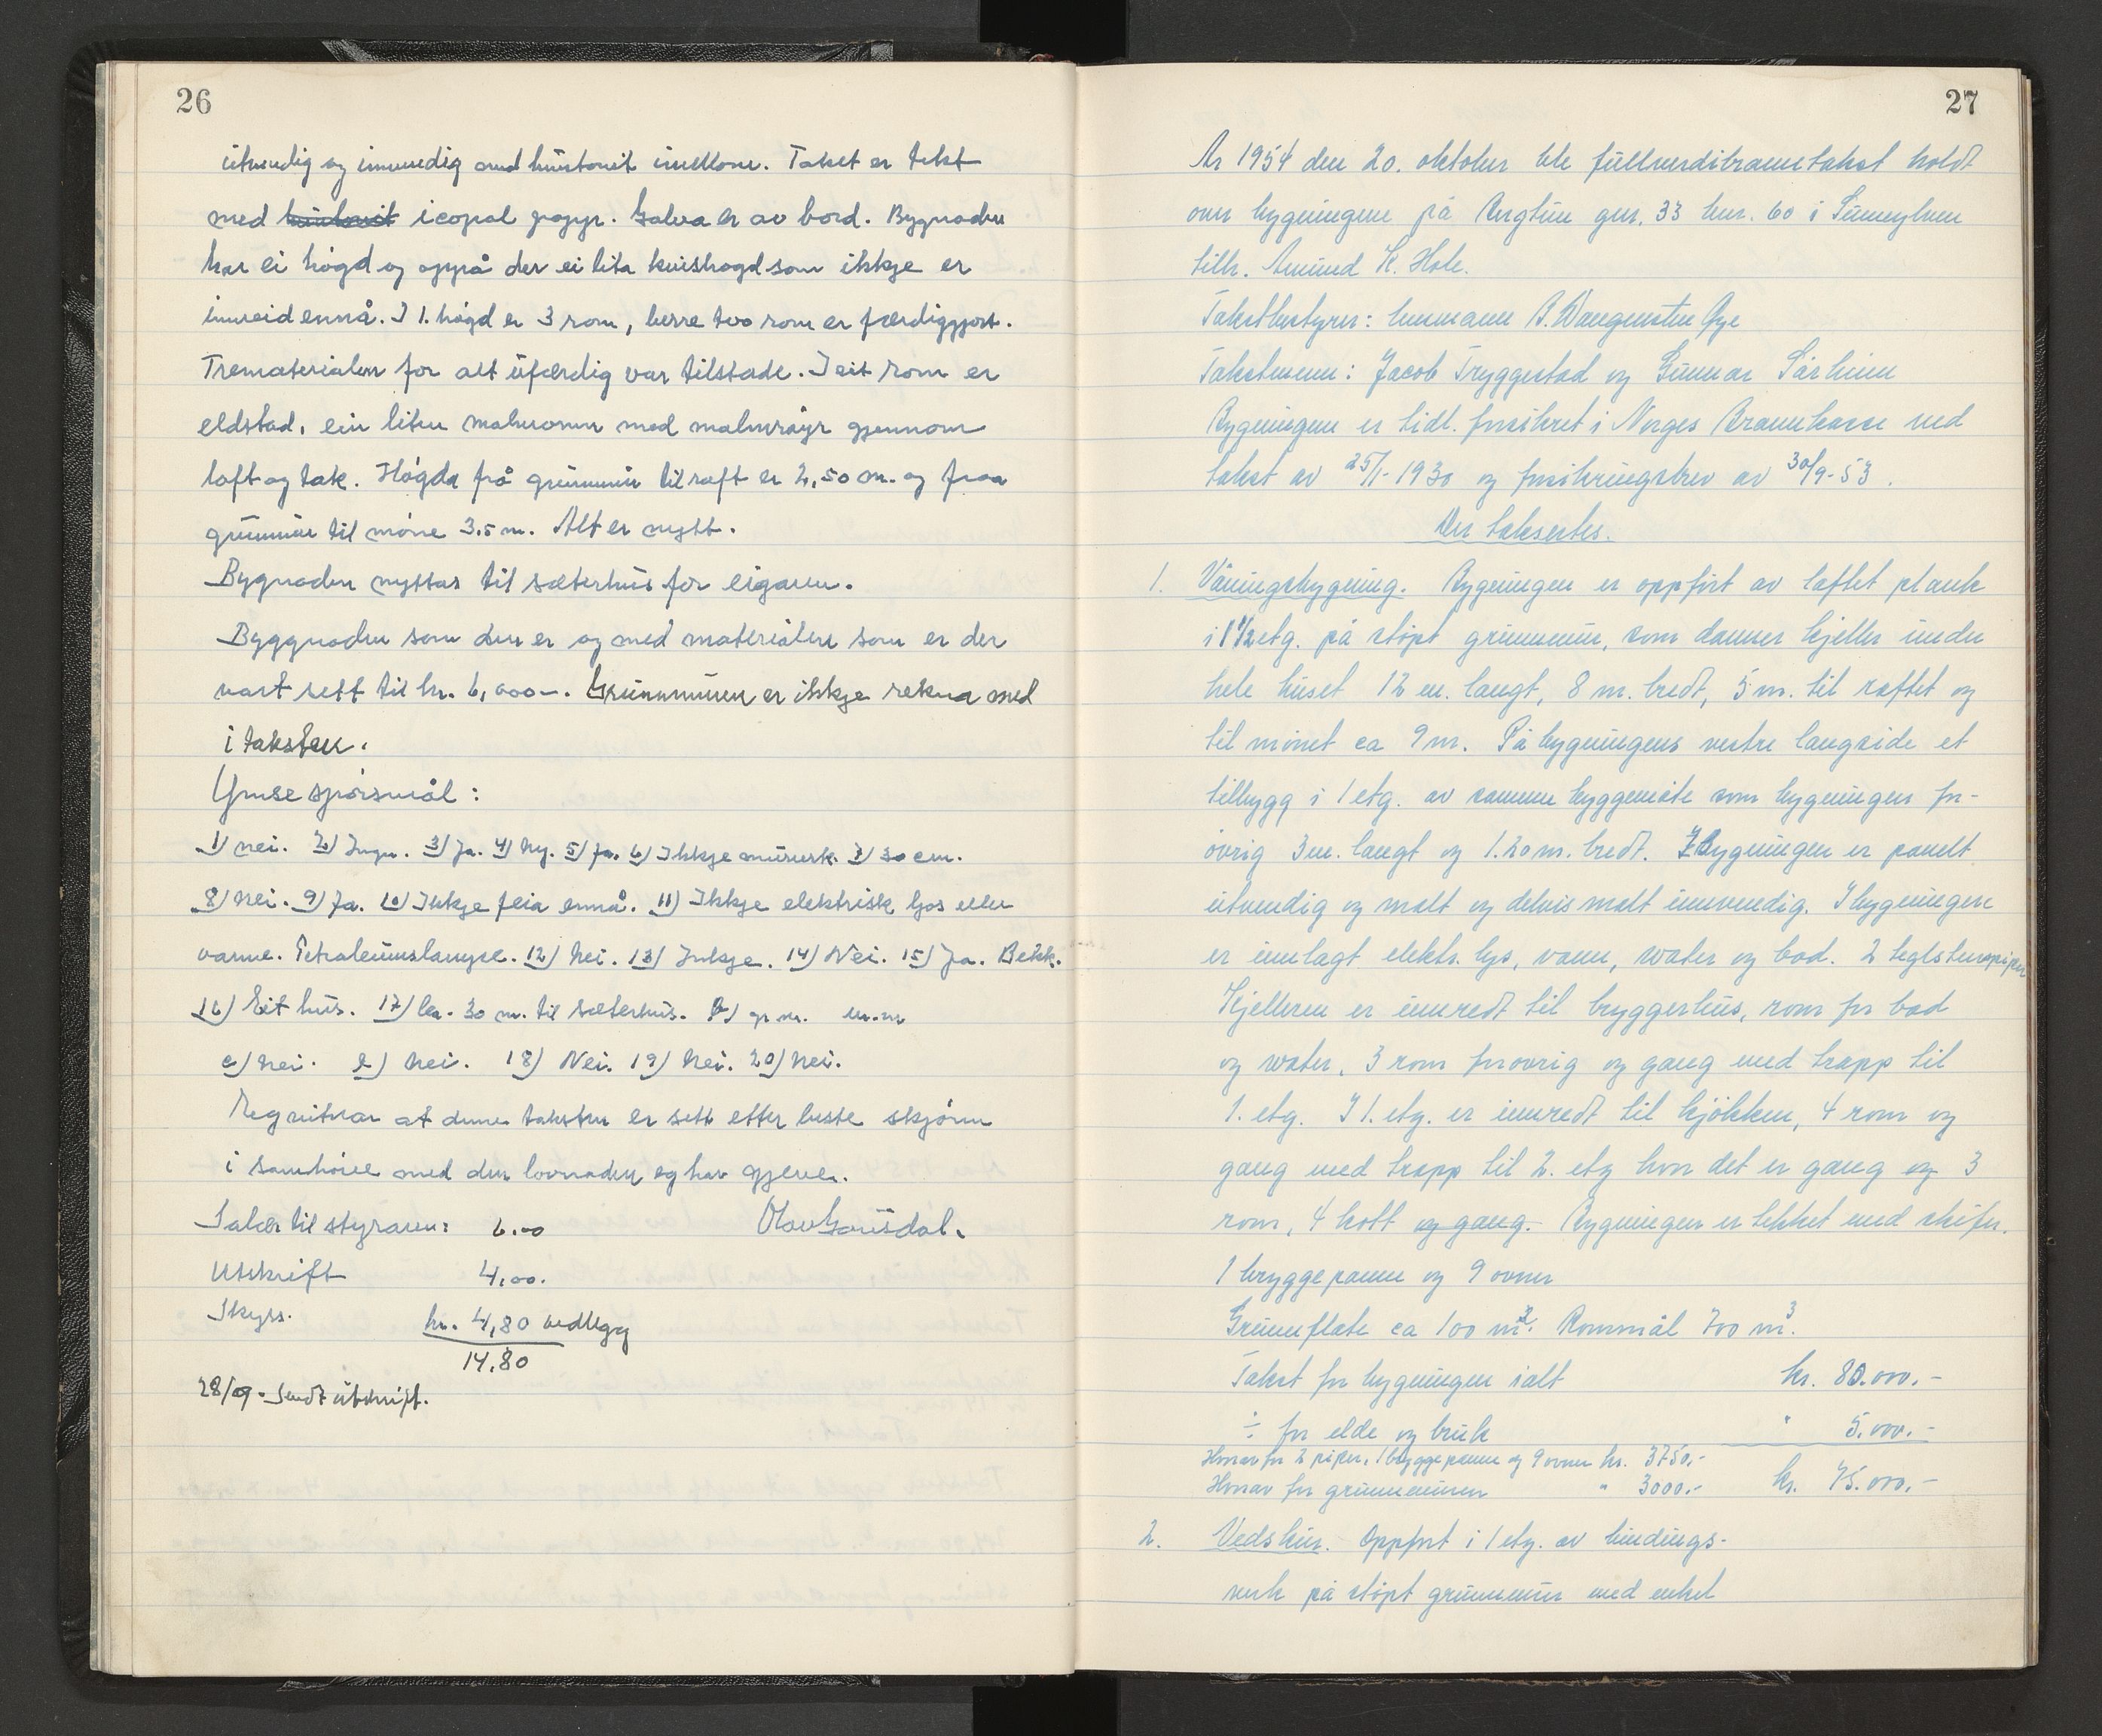 26
utvendig og innvendig med huntonit imellom. Taket er tekt
med huntonit icopal papyr. Golva er av bord. Bygnaden
har ei høgd og oppå der ei lita kvisthøgd som ikkje er
innreid ennå. I 1. høgd er 3 rom, berre two rom er færdiggjort.
Trematerialen for alt ufærdig var tilstade. I eit rom er
eldstad, ein liten malmomn med malmrøyr gjennom
loft og tak. Høgda frå grunnmur til raft er 2,50 m. og fraa
grunnmur til møne 3.5 m. Alt er nytt.
Bygnaden nyttas til sæterhus for eigaren.
Byggnaden som den er og med materialen som er der
vart sett til kr. 6,000-. Grunnmuren er ikkje rekna med
i taksten.
Ymse spørsmål:
1) nei. 2) Ingen. 3) Ja. 4) Ny. 5) Ja. 6) Ikkje murverk. 7) 30 cm.
8) Nei. 9) Ja. 10) Ikkje feia ennå. 11) Ikkje elektrisk ljos eller
varme. Petroleumslampe. 12) Nei. 13) Inkje. 14) Nei. 15) Ja. Bekk.
16) Eit hus. 17) Ca. 30 m. til sæterhus. b)
c) Nei. d) Nei. 18) Nei. 19) Nei. 20) Nei.
Eg vitnar at denne taksten er sett etter beste skjønn
i samhøve med den lovnaden eg har gjeve.
Salær til styraren: 6.00 Olav Gausdal.
Utskrift 4,00.
Skyss. kr. 4,80 vedlegg
14,80
28/9. Sendt utskrift.
27
År 1954 den 20. oktober ble fullverdibranntakst holdt
over bygningene på Bergtun gnr. 33 bnr. 60 i Sunnylven
tilh. Amund K. Hole.
Takstbestyrer: lensmann B. Wangensten Øye
Takstmenn: Jacob Tryggestad og Gunnar Sårheim
Bygningene er tidl. forsikret i Norges Brannkasse ved
takst av 25/1-1930 og forsikringsbrev av 30/9-53.
Der taksertes.
1. Våningsbygning. Bygningen er oppført av laftet plank
i 1 1/2 etg. på støpt grunnmur, som danner kjeller under
hele huset 12 m. langt, 8 m. bredt, 5 m. til raftet og
til mønet ca 9 m. På bygningens vestre langside et
tilbygg i 1 etg. av samme byggemåte som bygningen for-
øvrig 3 m. langt og 1.20 m. bredt. Bygningen er panelt
utvendig og malt og delvis malt innvendig. I bygningen
er innlagt elektr. lys, vann, water og bad. 2 teglstenspiper
Kjelleren er innredt til bryggerhus, rom for bad
og water, 3 rom forøvrig og gang med trapp til
1. etg. I 1. etg. er innredt til kjøkken, 4 rom og
gang med trapp til 2. etg hvor det er gang og 3
rom, 4 kott og gang. Bygningen er tekket med skifer.
1 bryggepanne og 9 ovner
Grunnflate ca 100 m². Rommål 700 m³.
Takst for bygningen ialt kr. 80.000.-
÷ for elde og bruk " 5.000.-
Herav for 2 piper, 1 bryggepanne og 9 ovner kr. 3750.-
Herav for grunnmuren " 3000.- kr. 75.000.-
2. Vedskur. Oppført i 1 etg. av bindings-
verk på støpt grunnmur med enkel